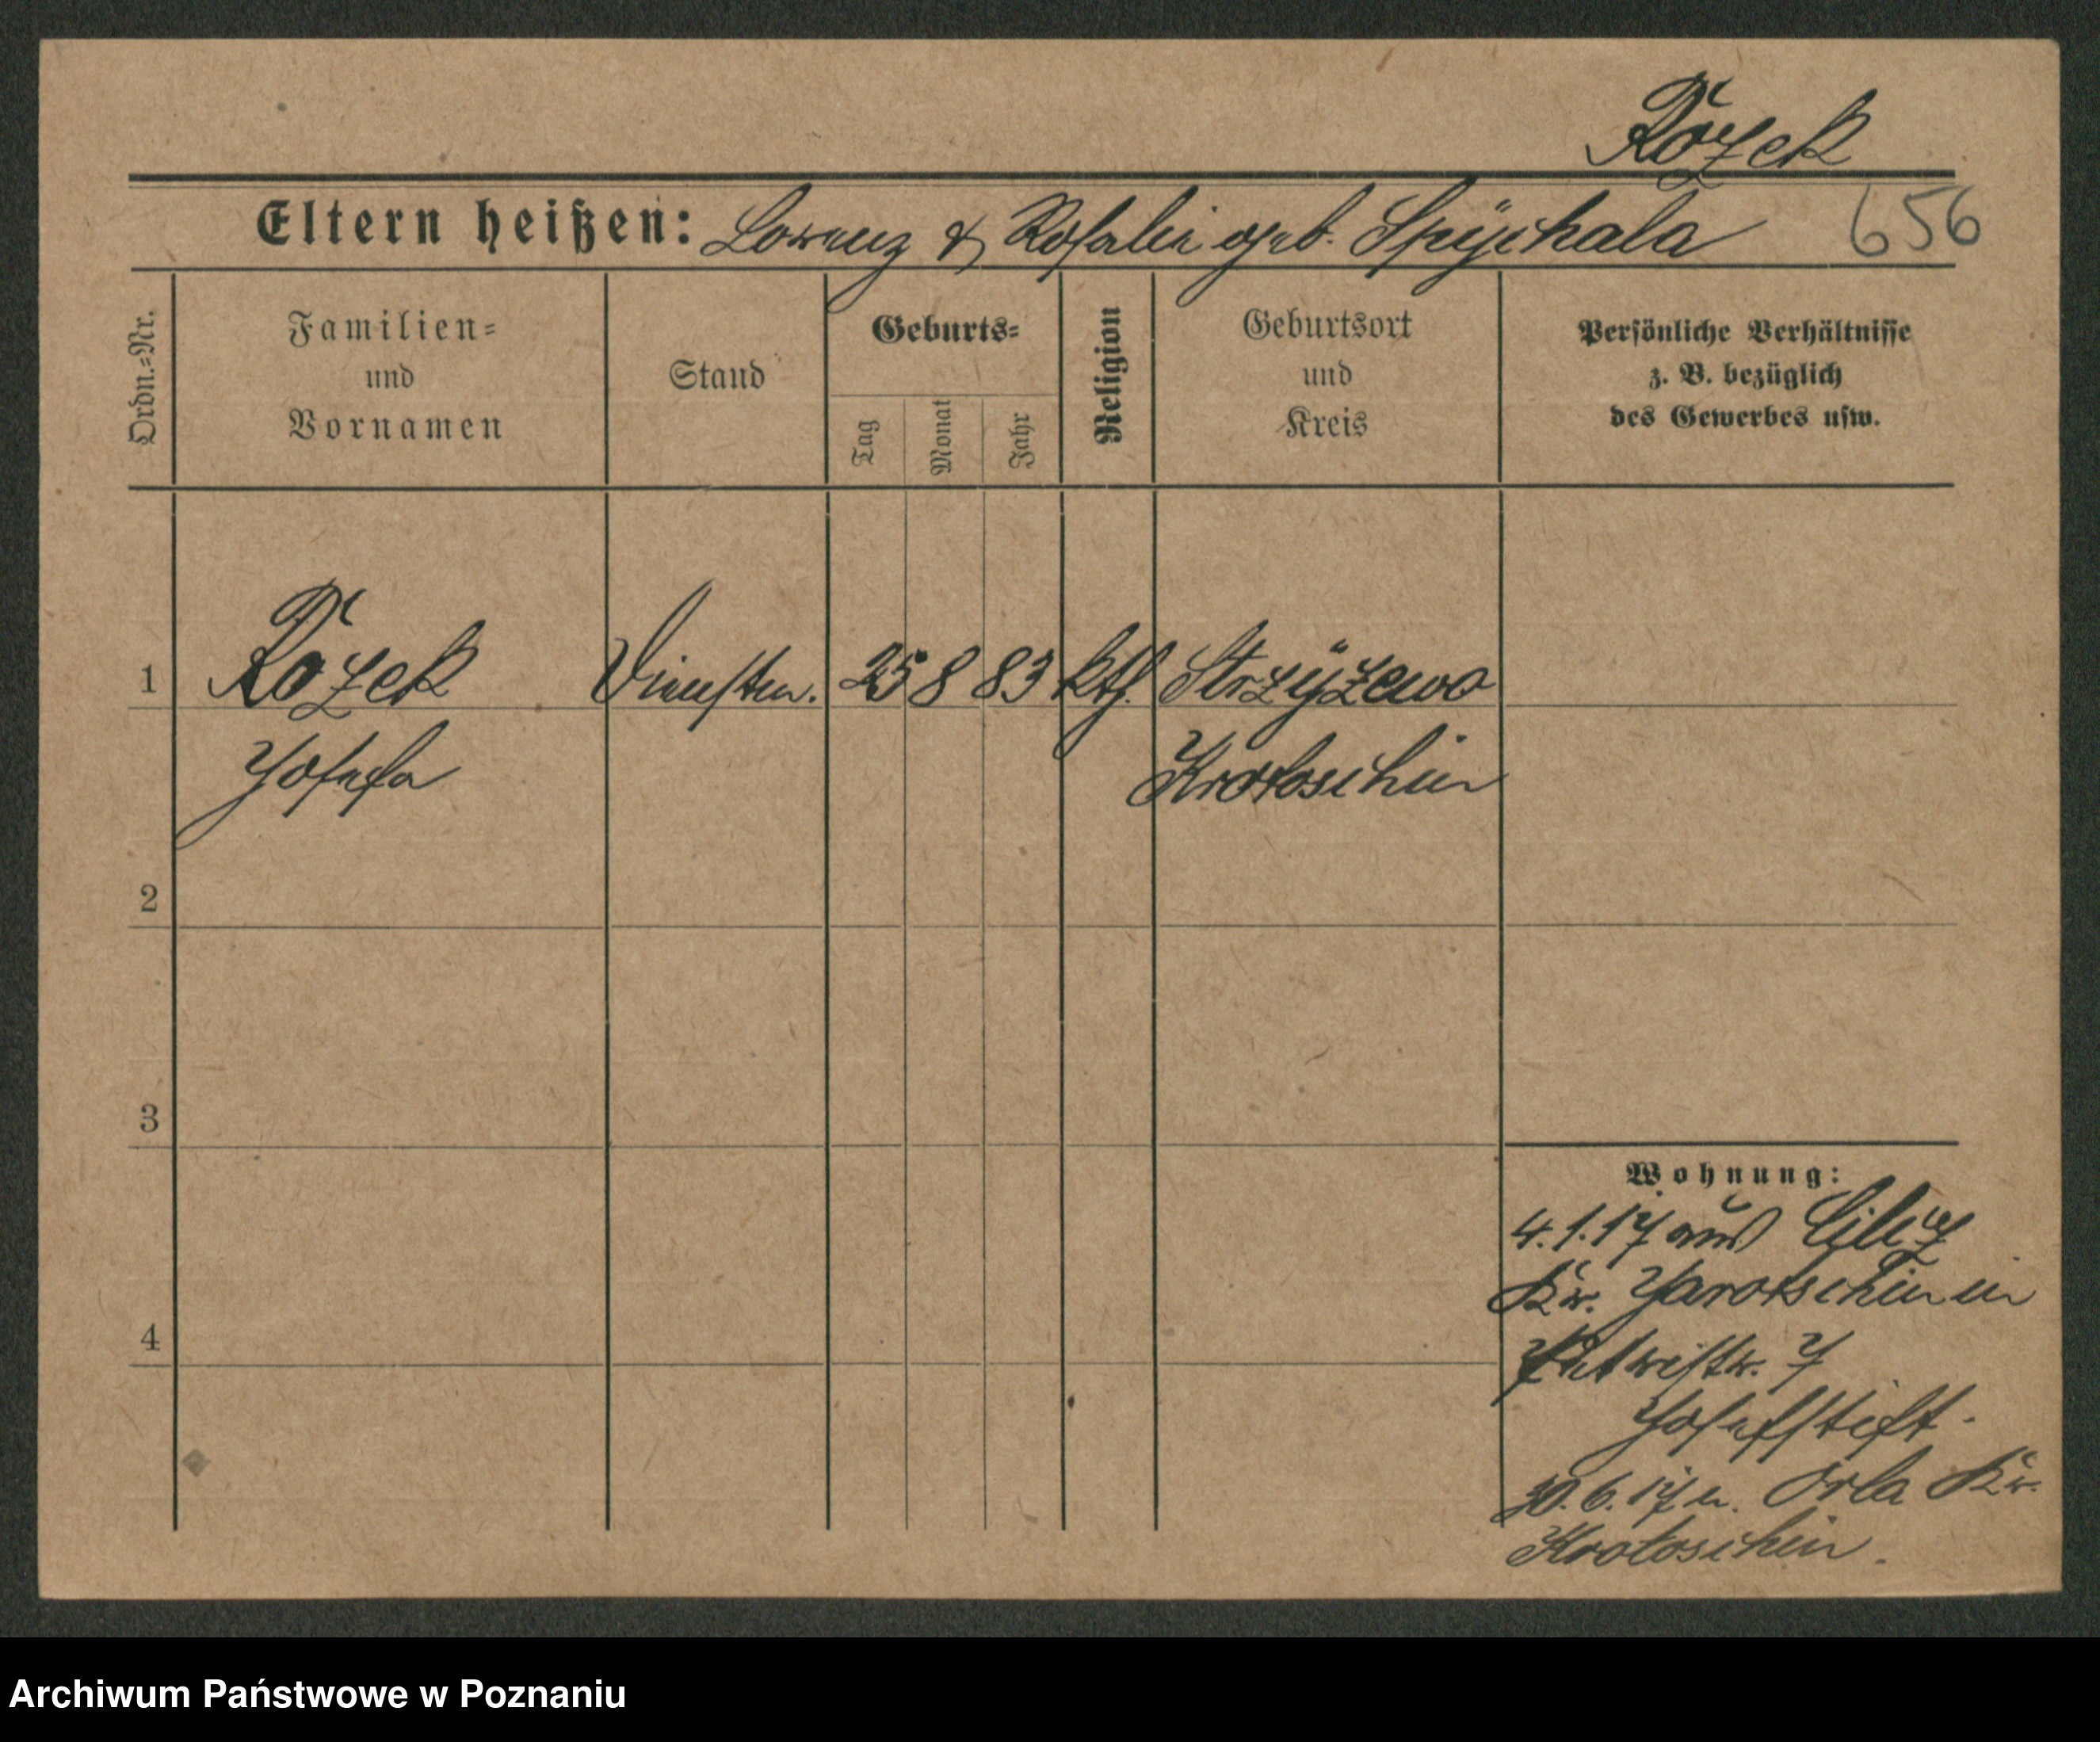 Rożek
Eltern heißen: Lorenz & Rosalie geb. Spÿchala 656
Ordn.=Nr. Familien= und Vornamen Stand Geburts= Tag Monat Jahr Religion Geburtsort und Kreis Persönliche Verhältnisse z. B. bezüglich des Gewerbes usw.
1 Rożek Dienstm. 25 8 83 kth. Strzÿżewo
Josefa Krotoschin
2
3
Wohnung:
4.1.17 aus
Kr. Jarotschin in
4
7
Josefstift.
30.6.17 n. Orla Kr.
Krotoschin.
Archiwum Państwowe w Poznaniu